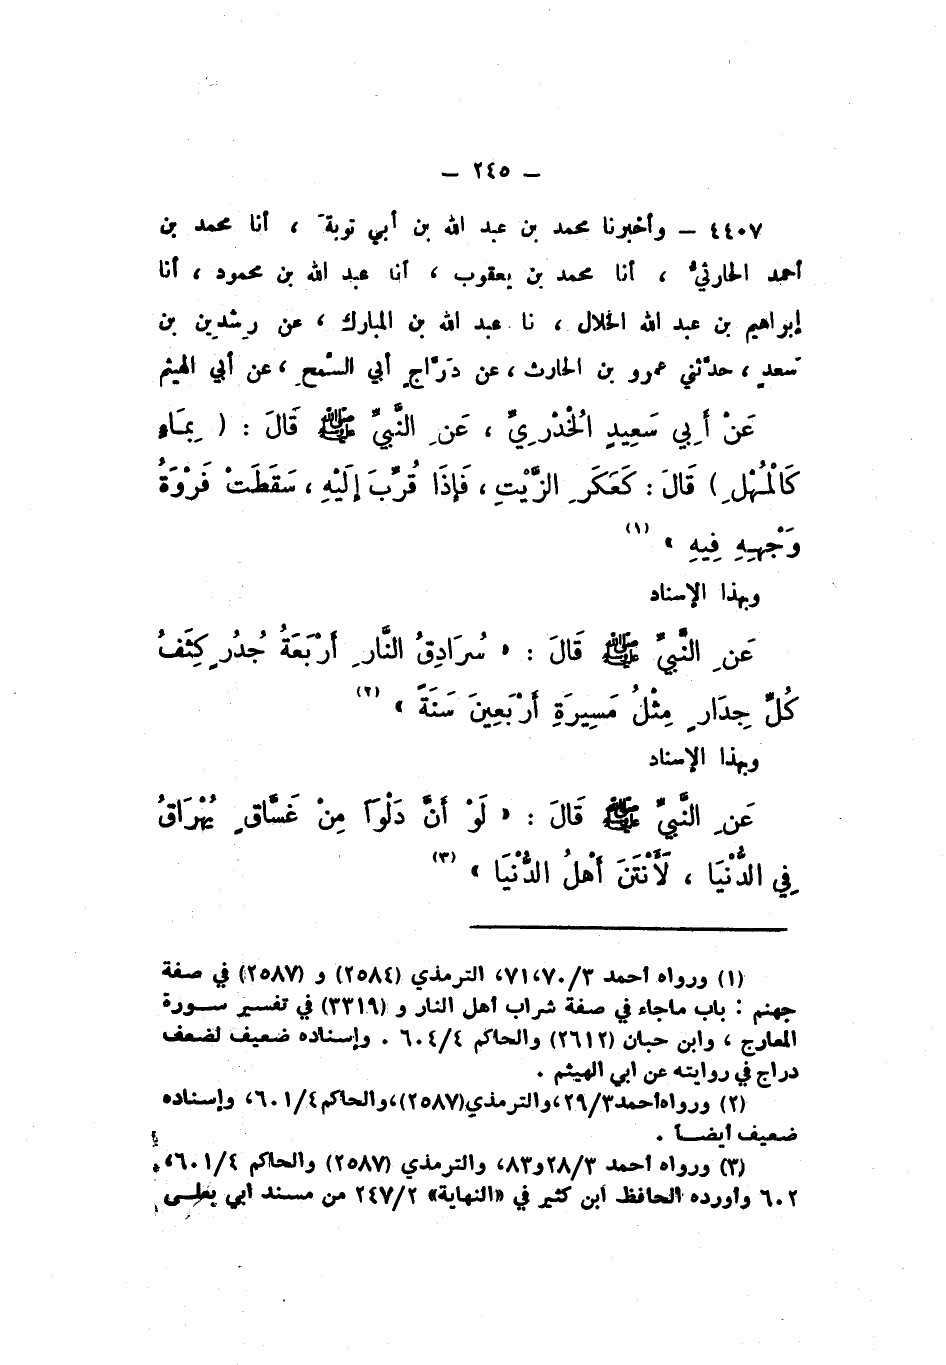 – ٢٤٥ –
٤٤٠٧ – وأخبرنا محمد بن عبد الله بن أبي توبةَ ، أنا محمد بن
أحمد الحارثيُّ ، أنا محمد بن يعقوب ، أنا عبد الله بن محمود ، أنا
إبراهيم بن عبد الله الخلال ، نا عبد الله بن المبارك ، عن رِشْدِين بن
سَعدٍ ، حدَّثني عمرو بن الحارث ، عن دَرَّاجٍ أبي السَّمحِ ، عن أبي الهيثم
عَنْ أَبِي سَعِيدٍ الْخُدْرِيِّ ، عَنِ النَّبِيِّ ﷺ قَالَ : ( بِمَاءٍ
كَالْمُهْلِ ) قَالَ : كَعَكَرِ الزَّيْتِ ، فَإِذَا قُرِّبَ إِلَيْهِ ، سَقَطَتْ فَرْوَةُ
وَجْهِهِ فِيهِ » (١)
وبهذا الإسناد
عَنِ النَّبِيِّ ﷺ قَالَ : « سُرَادِقُ النَّارِ أَرْبَعَةُ جُدُرٍ كِثَفُ
كُلِّ جِدَارٍ مِثْلُ مَسِيرَةِ أَرْبَعِينَ سَنَةً » (٢)
وبهذا الإسناد
عَنِ النَّبِيِّ ﷺ قَالَ : « لَوْ أَنَّ دَلْوًا مِنْ غَسَّاقٍ يُهْرَاقُ
فِي الدُّنْيَا ، لَأَنْتَنَ أَهْلُ الدُّنْيَا » (٣)
(١) ورواه أحمد ٧٠/٣، ٧١، الترمذي (٢٥٨٤) و (٢٥٨٧) في صفة
جهنم : باب ماجاء في صفة شراب أهل النار و (٣٣١٩) في تفسير سورة
المعارج ، وابن حبان (٢٦١٢) والحاكم ٦٠٤/٤ . وإسناده ضعيف لضعف
دراج في روايته عن ابي الهيثم .
(٢) ورواه أحمد ٢٩/٣، والترمذي (٢٥٨٧)، والحاكم ٦٠١/٤، وإسناده
ضعيف أيضاً .
(٣) ورواه أحمد ٢٨/٣ و٨٣، والترمذي (٢٥٨٧) والحاكم ٦٠١/٤،
٦٠٢ وأورده الحافظ ابن كثير في «النهاية» ٢٤٧/٢ من مسند أبي يعلى